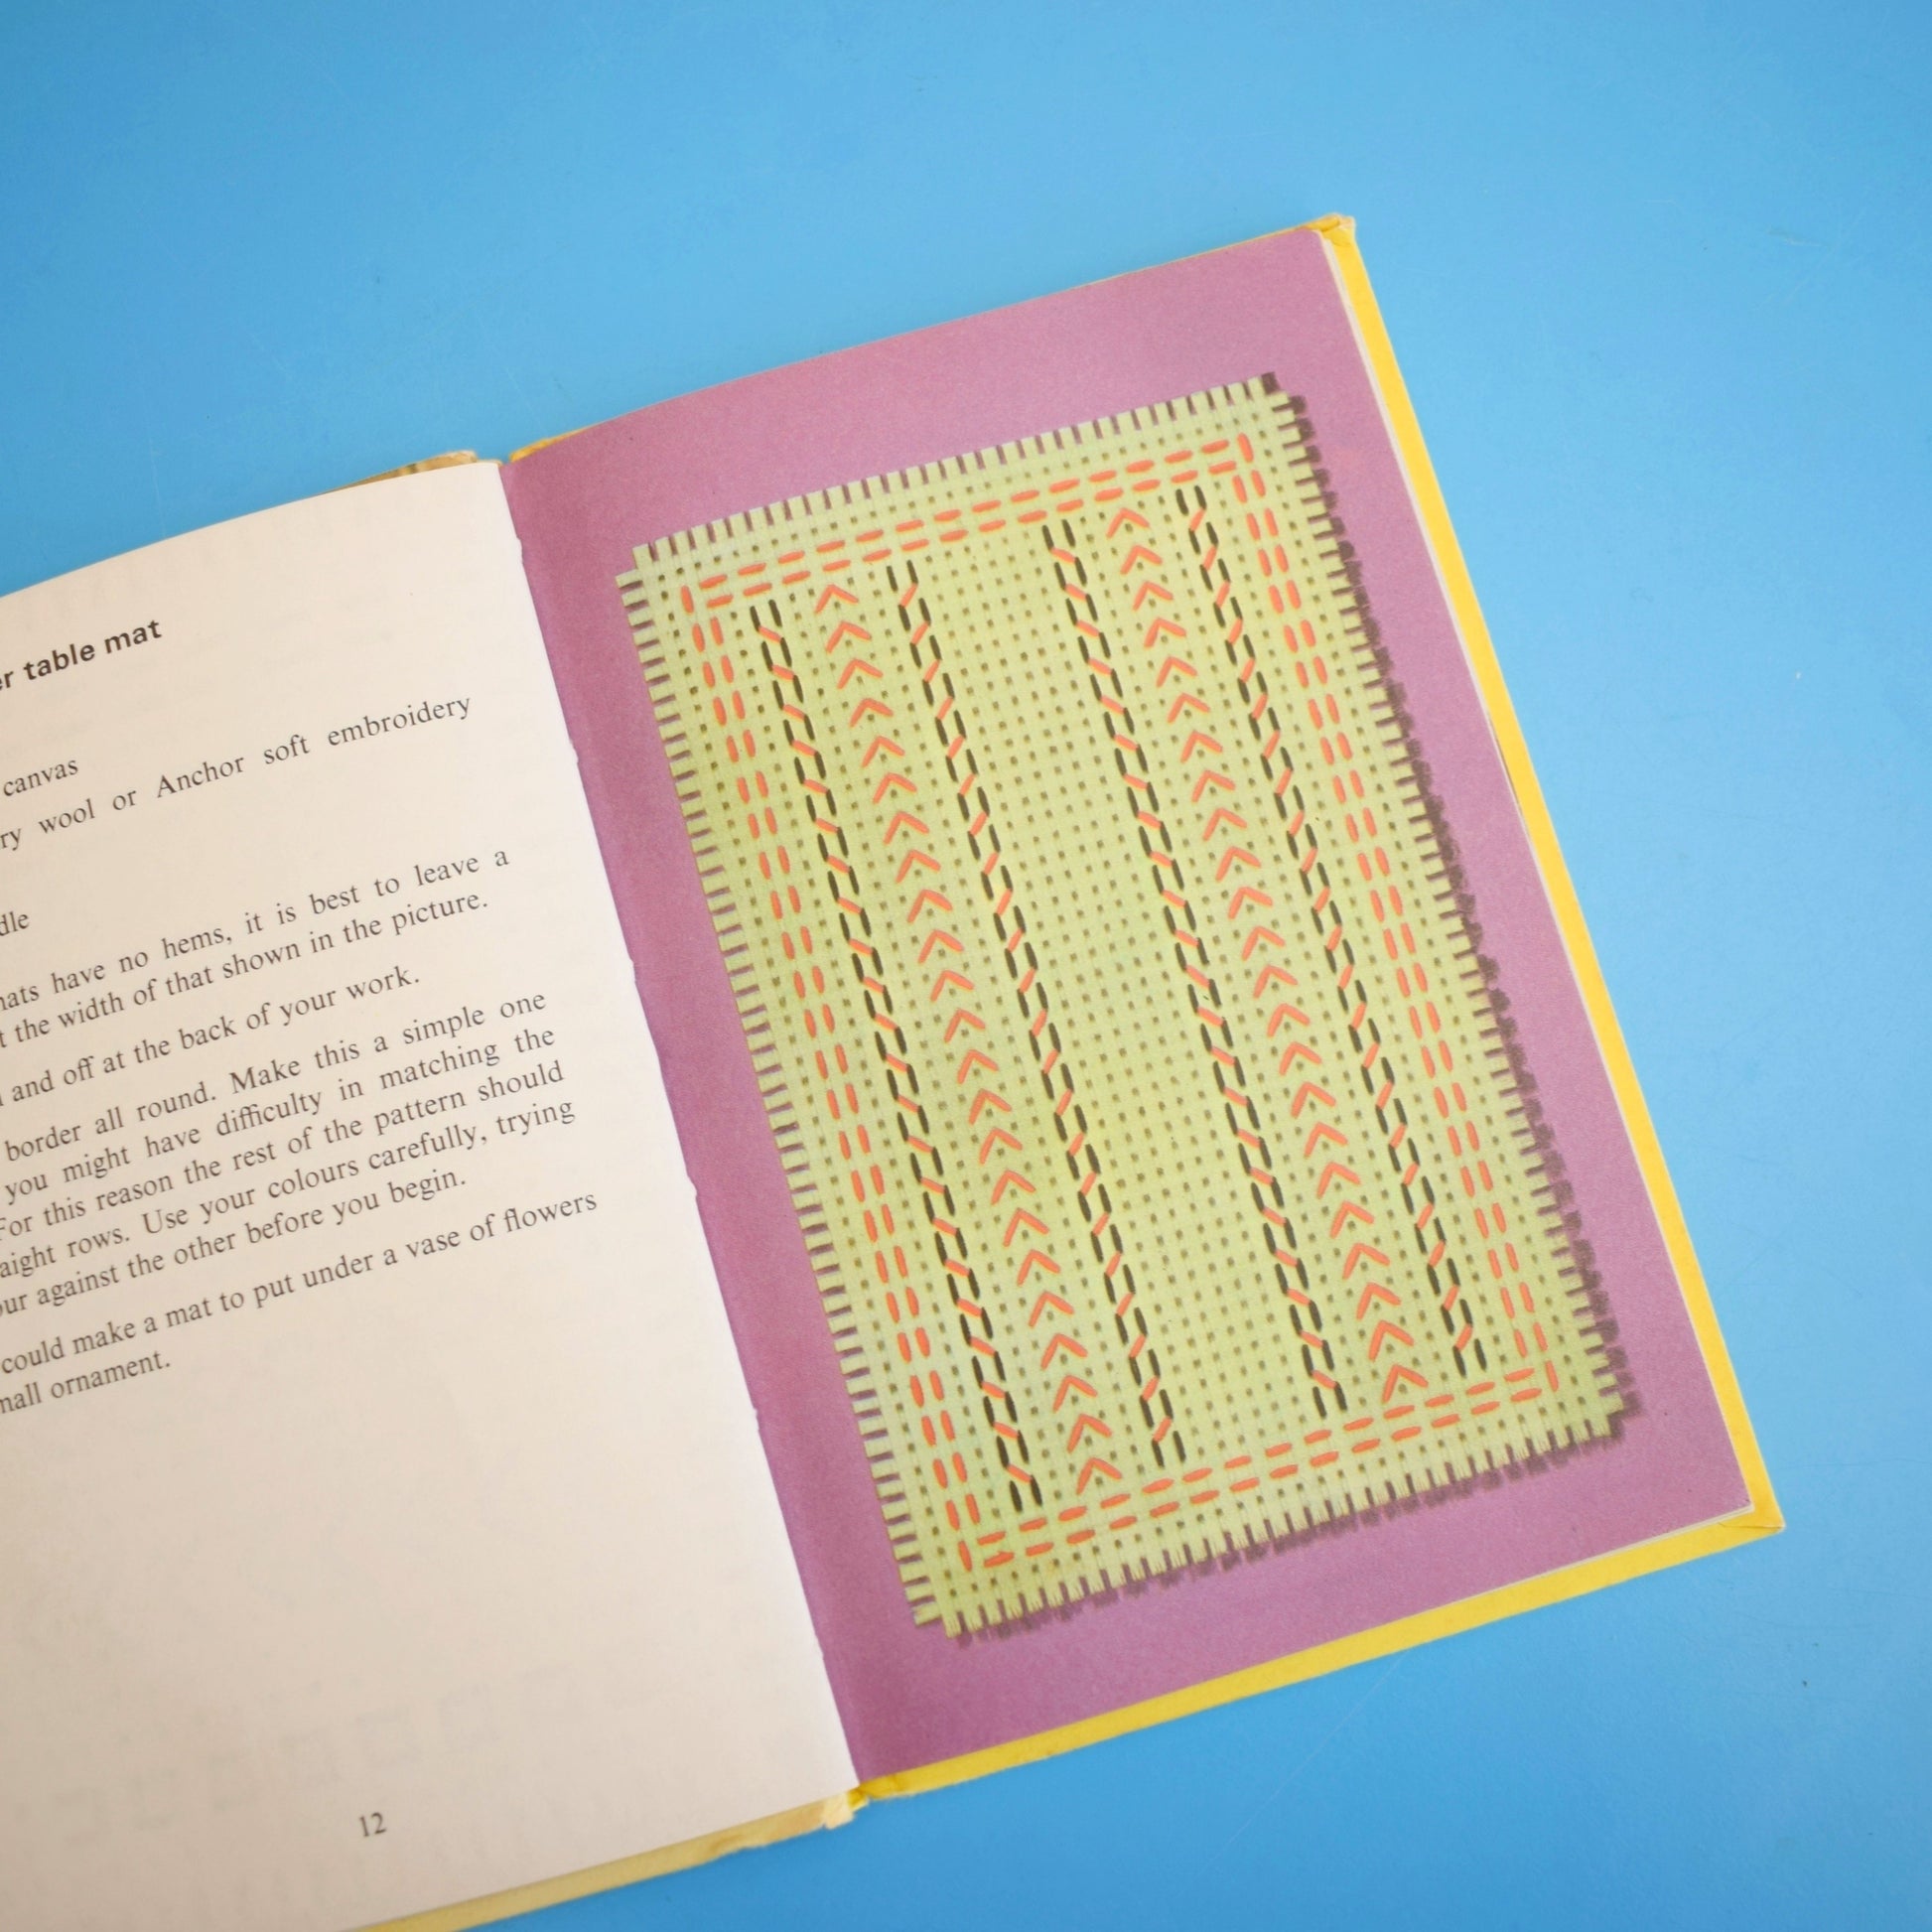 table mat
canvas
wool or Anchor soft embroidery
have no hems, it is best to leave a
the width of that shown in the picture.
and off at the back of your work.
border all round. Make this a simple one
you might have difficulty in matching the
For this reason the rest of the pattern should
rows. Use your colours carefully, trying
against the other before you begin.
could make a mat to put under a vase of flowers
ornament.
12